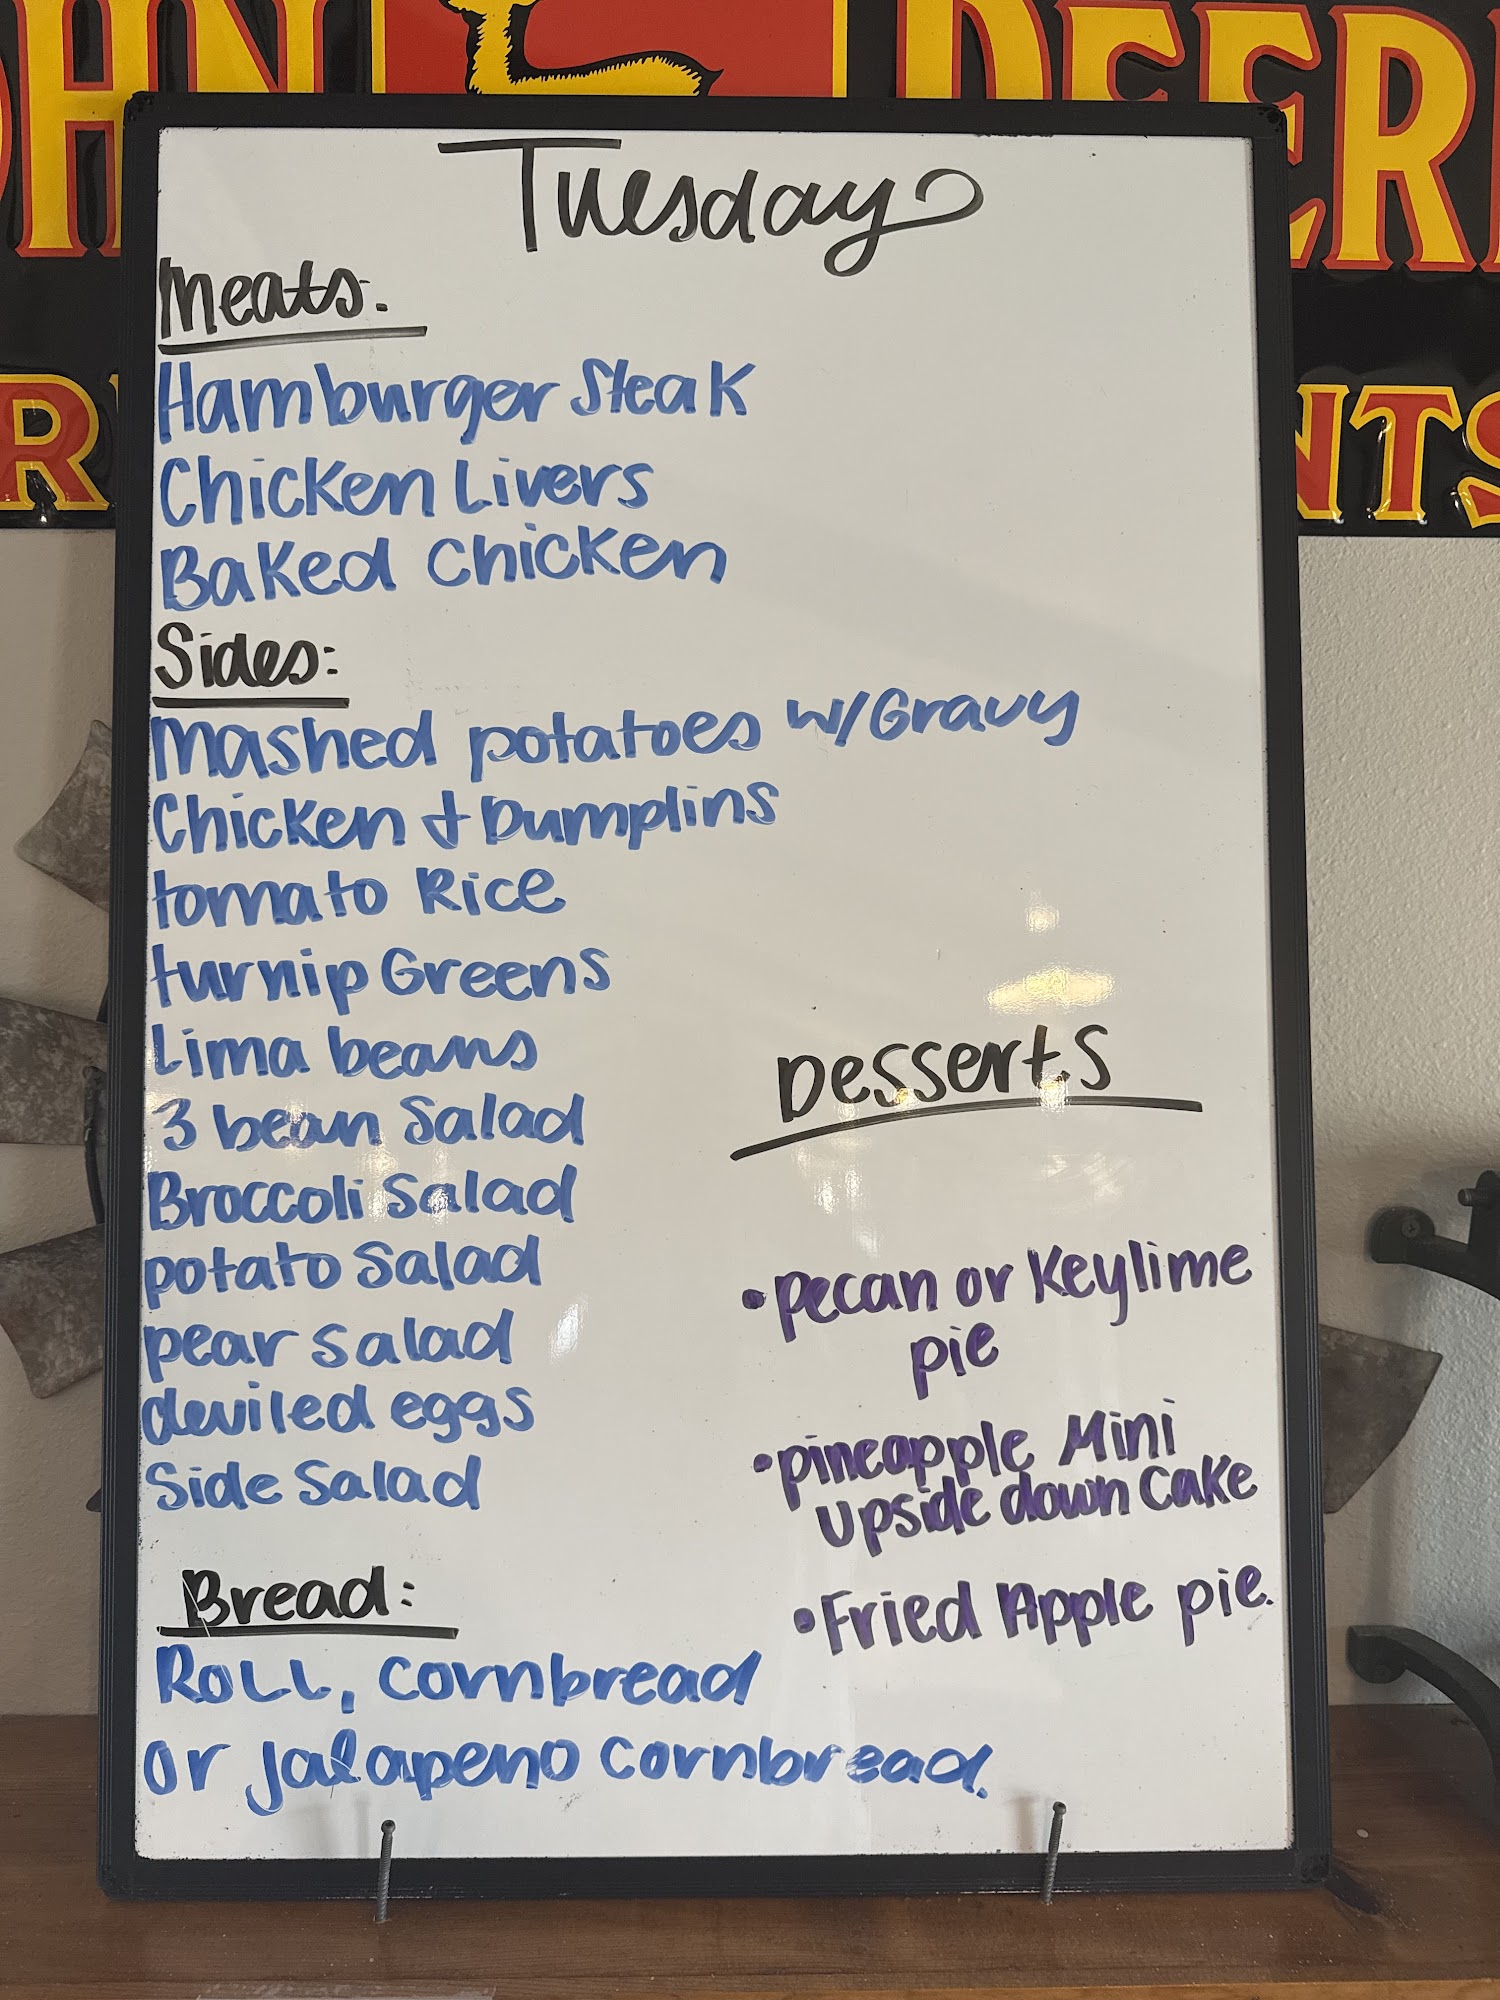 OHN DEER
R NTS
Tuesday
Meats:
Hamburger Steak
Chicken Livers
Baked Chicken
Sides:
Mashed potatoes w/Gravy
Chicken + Dumplins
tomato Rice
turnip Greens
Lima beans
3 bean Salad
Broccoli Salad
potato Salad
pear salad
deviled eggs
Side Salad
Bread:
Roll, Cornbread
or jalapeno Cornbread.
Desserts
•pecan or Keylime
pie
•pineapple Mini
upside down Cake
•Fried Apple pie.